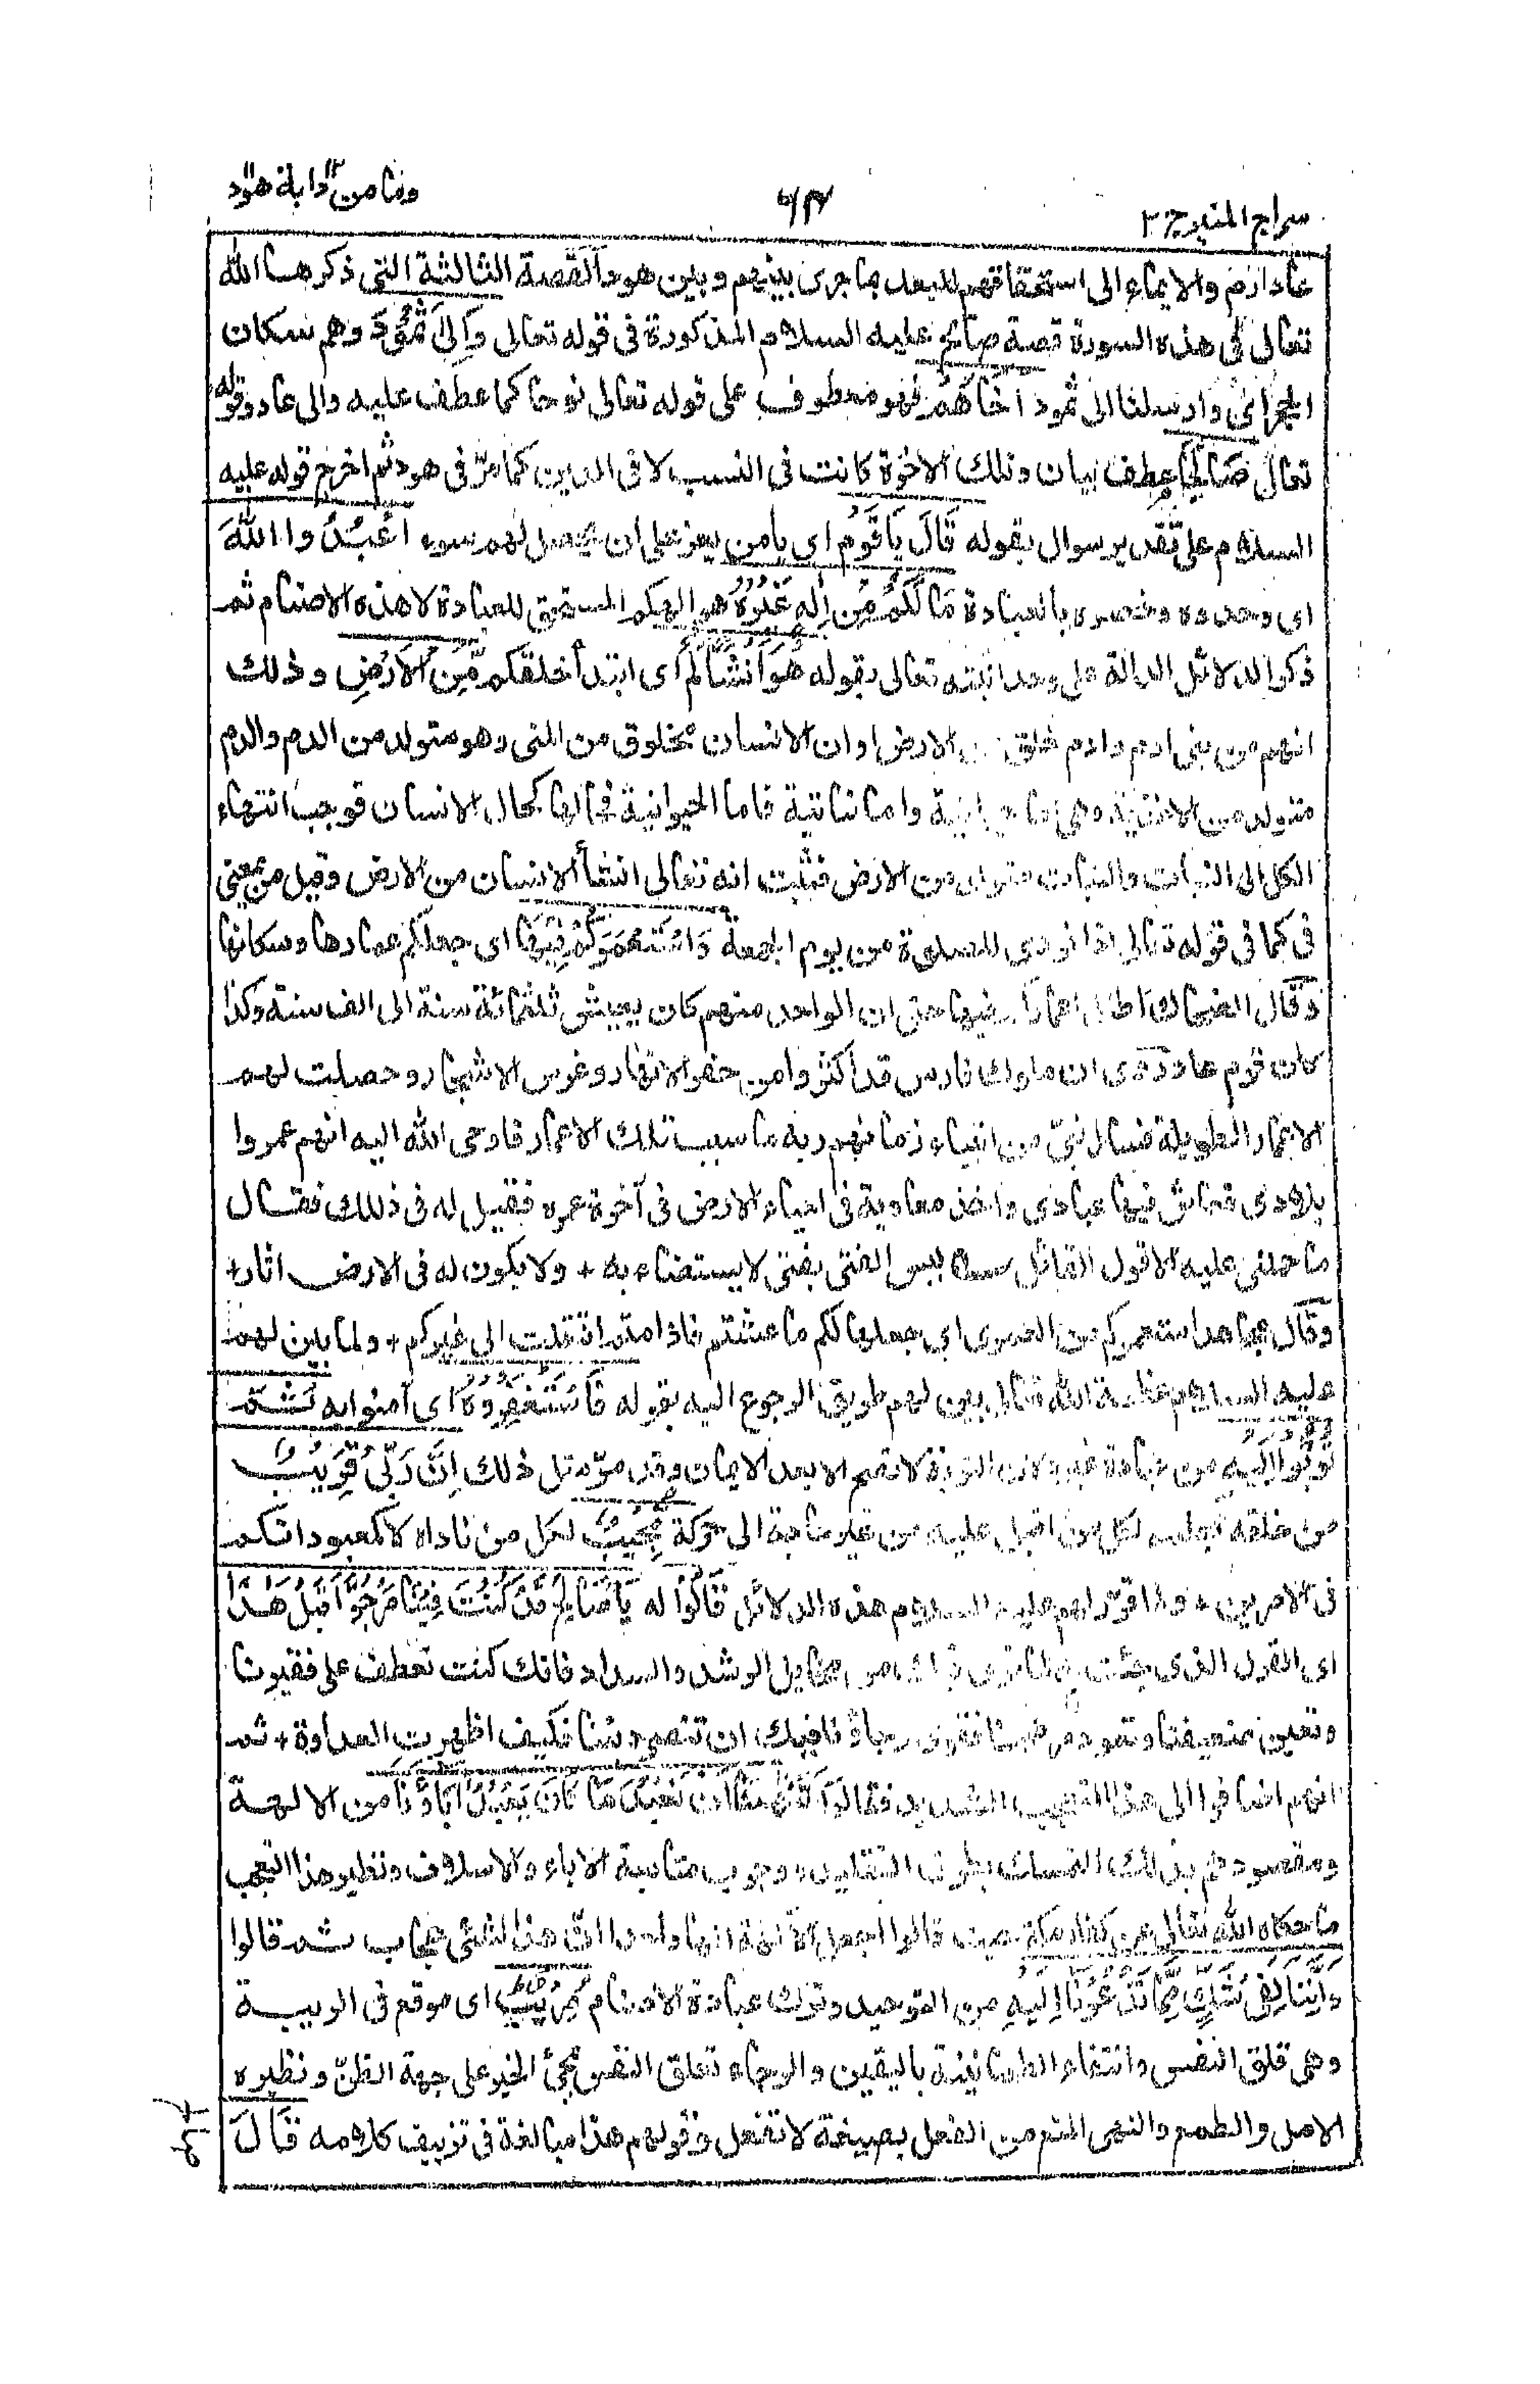 سراج المنيرج٢
٦١٣
وما من دابة هود
عاد ارم والايماء الى استحقاقهم للبعد بما جرى بينهم وبين هود القصة الثالثة التى ذكرها الله
تعالى فى هذه السورة قصة صالح عليه السلام المذكورة فى قوله تعالى وَاِلىٰ ثَمُوْدَ وهم سكان
الحجر اى وارسلنا الى ثمود اَخَاهُمْ فهو معطوف على قوله تعالى نوحا كما عطف عليه والى عاد وقوله
تعالى صَالِحًا عطف بيان وتلك الاخوة كانت فى النسب لا فى الدين كما مرّ فى هود ثم اخرج قوله عليه
السلام على تقدير سوال بقوله قَالَ يَاقَوْمِ اى يا من يعز على ان يحصل لهم سوء اعْبُدُوا اللهَ
اى وحدوه وخصوه بالعبادة مَا لَكُمْ مِّنْ اِلٰهٍ غَيْرُهٗ هو الهكم المستحق للعبادة لا هذه الاصنام ثم
ذكر الدلائل الدالة على وحدانيته تعالى بقوله هُوَ اَنْشَاَكُمْ اى ابتدأ خلقكم مِّنَ الْاَرْضِ وذلك
انهم من بنى ادم وادم خلق من الارض او ان الانسان مخلوق من المنى وهو متولد من الدم والدم
متولد من الاغذية وهى اما حيوانية واما نباتية فاما الحيوانية فحالها كحال الانسان فوجب انتهاء
الكل الى النبات والنبات متولد من الارض فثبت انه تعالى انشأ الانسان من الارض وقيل من بمعنى
فى كما فى قوله تعالى اذا نودى للصلوة من يوم الجمعة وَاسْتَعْمَرَكُمْ فِيْهَا اى جعلكم عمارها وسكانها
وقال الضحاك اطال اعماركم فيها حتى ان الواحد منهم كان يعيش ثلثمائة سنة الى الف سنة وكذا
كان قوم عاد روى ان ملوك فارس قد اكثروا من حفر الانهار وغرس الاشجار وحصلت لهم
الاعمار الطويلة فسال نبىّ من انبياء زمانهم ربه ما سبب تلك الاعمار فاوحى الله اليه انهم عمروا
بلادى فعاش فيها عبادى واخذ معاوية فى احياء الارض فى آخرة عمره فقيل له فى ذلك فقال
ما حملنى عليه الا قول القائل ليس الفتى بفتى لا يستضاء به + ولا يكون له فى الارض اثار+
وقال مجاهد استعمركم من العمرى اى جعلها لكم ما عشتم فاذا متم انتقلت الى غيركم + ولما بين لهم
عليه السلام عظمة الله تعالى بين لهم طريق الرجوع اليه بقوله فَاسْتَغْفِرُوْهُ اى آمنوا به ثُمَّ
تُوْبُوْا اِلَيْهِ من عبادة غيره لان التوبة لا تصح الا بعد الايمان وقد مرّ مثل ذلك اِنَّ رَبِّىْ قَرِيْبٌ
من خلقه بعلمه لكل من اقبل عليه من غير حاجة الى حركة مُّجِيْبٌ لكل من ناداه لا كمعبوداتكم
فى الامرين + ولما قرّر لهم عليه السلام هذه الدلائل قَالُوْا له يَاصَالِحُ قَدْ كُنْتَ فِيْنَا مَرْجُوًّا قَبْلَ هٰذَا
اى القول الذى جئت به لما نرى فيك من مخايل الرشد والسداد فانك كنت تعطف على فقيرنا
وتعين ضعيفنا وتعود مرضانا فقوى رجاؤنا فيك ان تنصر ديننا فكيف اظهرت العداوة + ثم
انهم اضافوا الى هذا التعجب الشديد فقالوا اَتَنْهٰنَا اَنْ نَّعْبُدَ مَا كَانَ يَعْبُدُ اٰبَاؤُنَا من الالهة
ومقصودهم بذلك التمسك بطرف التقليد ووجوب متابعة الاباء والاسلاف ونظير هذا التعجب
ما حكاه الله تعالى عن كفار مكة حيث قالوا اجعل الآلهة الها واحدا ان هذا لشئ عجاب ثم قالوا
وَاِنَّنَا لَفِىْ شَكٍّ مِّمَّا تَدْعُوْنَا اِلَيْهِ من التوحيد وترك عبادة الاصنام مُرِيْبٍ اى موقع فى الريبة
وهى قلق النفس وانتفاء الطمانينة باليقين والرجاء تعلق النفس بمجئ الخير على جهة الظنّ ونظيره
الامل والطمع والنهى المنع من الفعل بصيغة لا تفعل وقولهم هذا مبالغة فى تزييف كلامه قَالَ